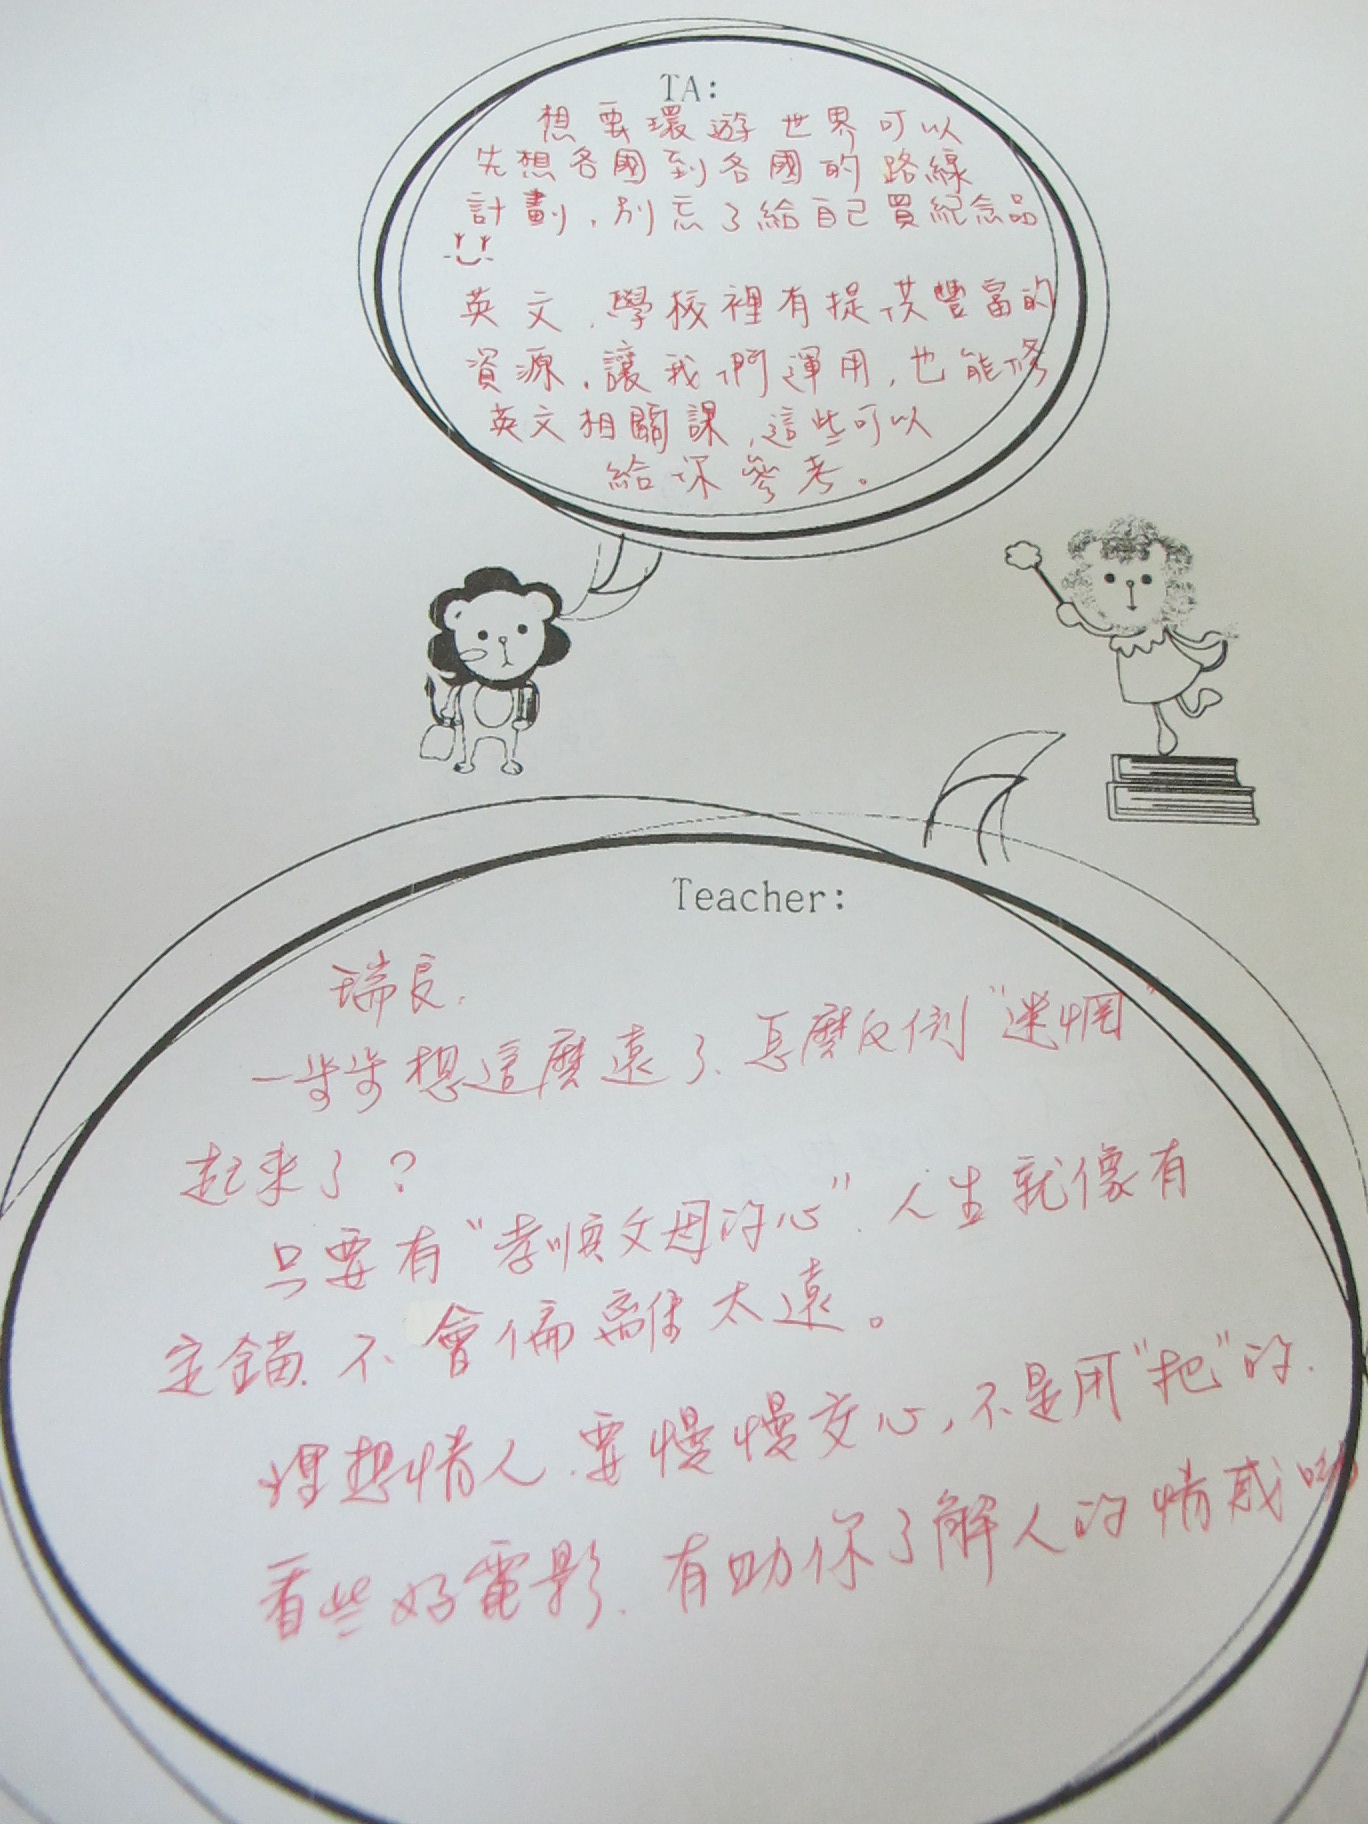 TA:
想要環遊世界可以
先想各國到各國的路線
計劃,別忘了給自己買紀念品
英文,學校裡有提供豐富的
資源,讓我們運用,也能修
英文相關課,這些可以
給你參考。
Teacher:
瑞良,
一步步想這麼遠了、怎麼反倒"迷惘"
起來了?
只要有"孝順父母的心",人生就像有
定錨、不會偏離太遠。
理想情人、要慢慢交心,不是用"把"的、
看些好電影、有助你了解人的情感